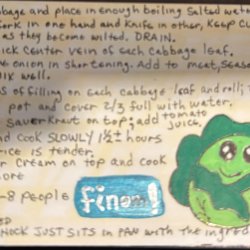 bbage and place in enough boiling salted wate
fork in one hand and knife in other, keep cu
as they become wilted. DRAIN.
ick center vein of each cabbage leaf.
onion in shortening. Add to meat, season
ix well.
s of filling on each cabbage leaf and roll;
pot and cover 2/3 full with water.
Sauerkraut on top; add tomato
juice.
nd Cook SLOWLY 1½± hours
rice is tender.
r Cream on top and cook
ore
-8 PEOPLE
finom!
ED
NOCK JUST SITS in PAN with the ingred